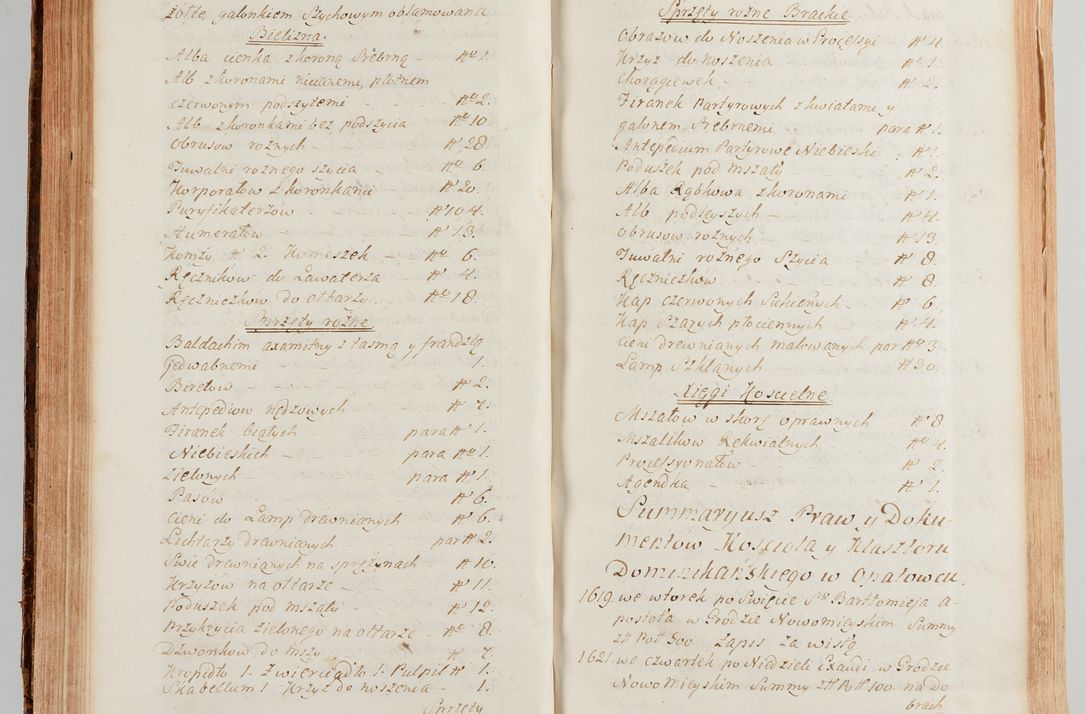 żołte, galonkiem Szychowym oblamowana
Bielizna.
Alba cienka z koroną Srebrną — No 1.
Alb z koronami nicianemi, płotnem
czerwonym podszytemi — No 2.
Alb z koronkami bez podszycia No 10.
Obrusow rożnych — No 28.
Tuwalni rożnego szycia — No 6.
Korporałow z koronkami No 20.
Puryfikaterzow No 104.
Humerałow — No 13.
Komży No 2. Komeszek — No 6.
Ręcznikow do Lawaterza No 4.
Ręczniczkow do ołtarzy. No 18.
Sprzęty rożne
Baldachim axamitny z tasmą y frandzlą
jedwabnemi — 1.
Biretow — No 2.
Antepediow rożnych No 7.
Firanek białych — para No 1.
Niebieskich — para No 1.
Zielonych — para No 1.
Pasów — No 6.
Cieni do Lamp drewnianych No 6.
Lichtarzy drewnianych — par No 2.
Swic drewnianych na sprężynach No 10.
Krzyżow na ołtarze — No 11.
Poduszek pod mszały — No 12.
Przykrycia zielonego na ołtarze — No 8.
Dzwonkow do mszy No 7.
Kropidło 1. Zwierciadło 1. Pulpit No 1.
Skabellum 1 Krzyż do noszenia — 1.
Sprzęty
Sprzęty rożne Brackie
Obrazow do Noszenia w Processyi No 4
Krzyż do noszenia No 1.
Chorągiewek — No 2.
Firanek Partyrowych z kwiatami y
galonem Srebrnemi para No 1.
Antepedium Partyrowe Niebieski No 1.
Poduszek pod mszały No 2.
Alba Rąbkowa z koronami — No 1.
Alb podleyszych — No 4.
Obrusow rożnych — No 13.
Tuwalni rożnego Szycia No 8.
Ręczniczkow — No 8.
Kap czerwonych Sukiennych — No 6.
Kap Szarych płociennych No 4.
Cieni drewnianych malowanych par No 3.
Lamp Szklanych No 30.
Xięgi Koscielne.
Mszałow w skorę oprawnych No 8
Mszalikow Rekwialnych No 4.
Processyonałow — No 2.
Agendka — No 1.
Summaryusz Praw y Doku-
mentow Koscioła y Klasztoru
Dominikańskiego w Opatowcu.
1619. we wtorek po Swięcie Sgo Bartłomieja A-
postoła w Grodzie Nowomieyskim Summy
zł Pol 900 zapis za wisłą
1621. we czwartek po Niedzieli Exaudi w Grodzie
Nowo Mieyskim Summy zł Pol 100 na do
brach